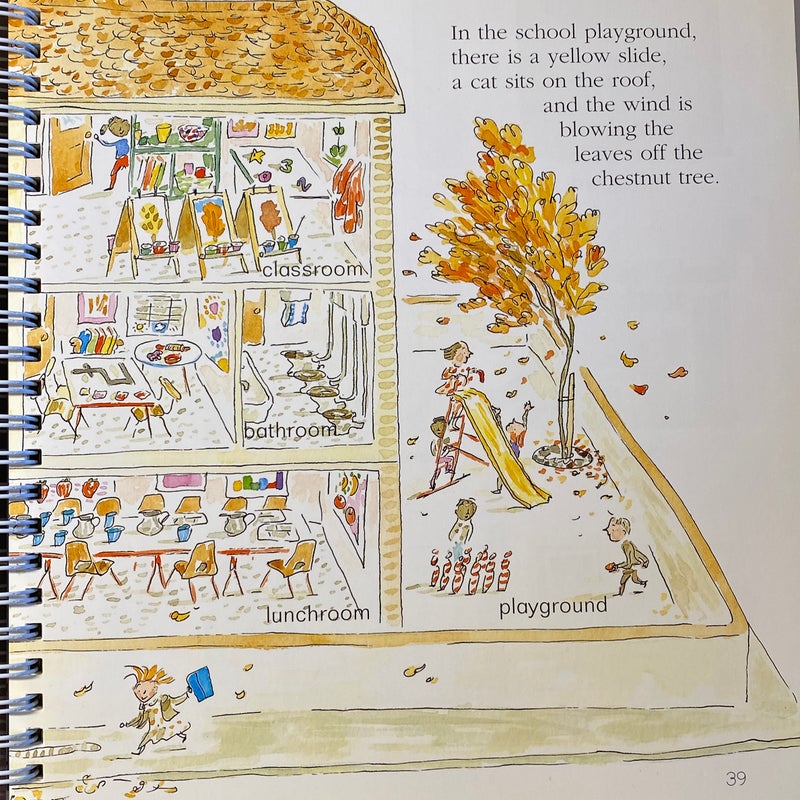 In the school playground,
there is a yellow slide,
a cat sits on the roof,
and the wind is
blowing the
leaves off the
chestnut tree.
classroom
bathroom
lunchroom
playground
39